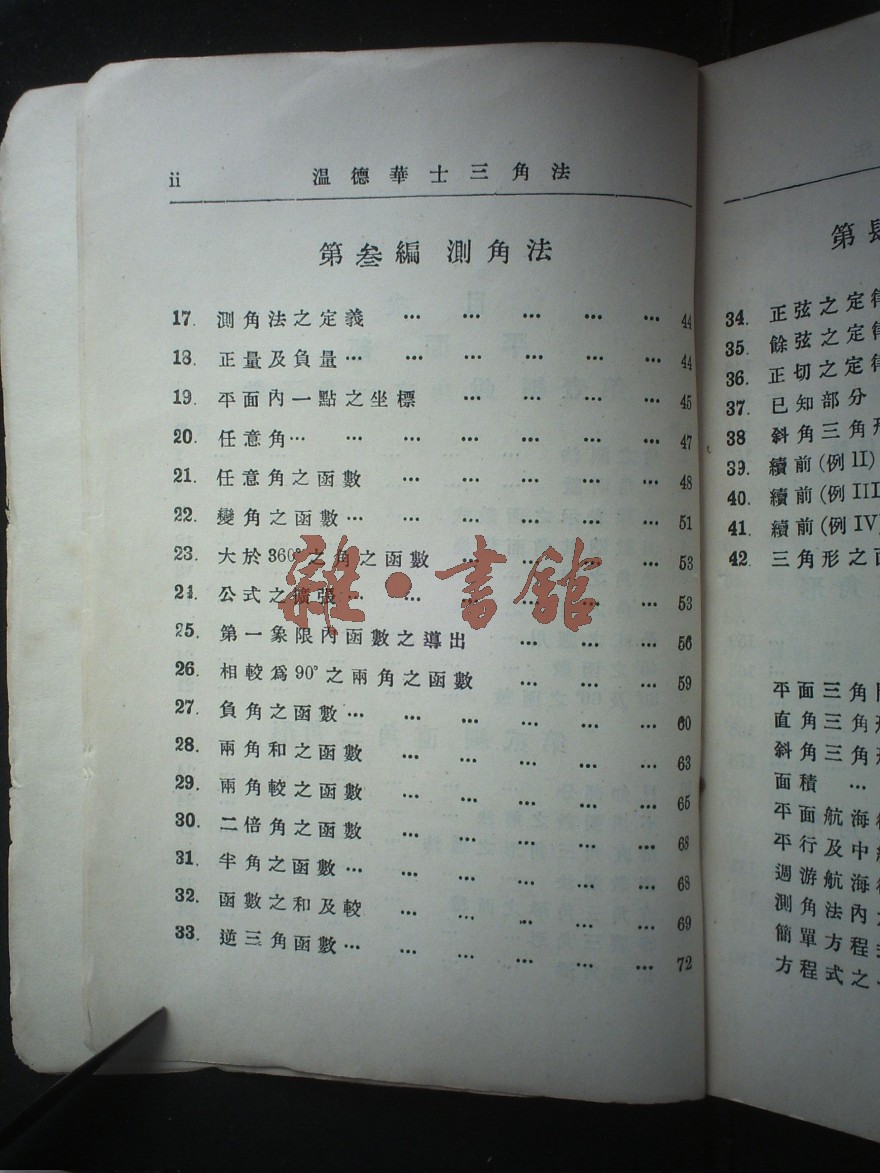 ii 溫德華士三角法
第叁編 測角法
17. 測角法之定義 … … … … … 44
18. 正量及負量… … … … … 44
19. 平面內一點之坐標 … … … … 45
20. 任意角… … … … … … 47
21. 任意角之函數 … … … … … 48
22. 變角之函數… … … … … 51
23. 大於360°之角之函數 … … … … 53
24. 公式之擴張… … … … … 53
25. 第一象限內函數之導出 … … … 56
26. 相較爲90°之兩角之函數 … … … 59
27. 負角之函數… … … … … 60
28. 兩角和之函數 … … … … … 63
29. 兩角較之函數 … … … … … 65
30. 二倍角之函數 … … … … … 68
31. 半角之函數… … … … … 68
32. 函數之和及較 … … … … … 69
33. 逆三角函數… … … … … 72
雜·書館
第肆
34. 正弦之定律
35. 餘弦之定律
36. 正切之定律
37. 已知部分
38 斜角三角形
39. 續前(例II)
40. 續前(例III
41. 續前(例IV)
42. 三角形之面
平面三角
直角三角形
斜角三角形
面積 …
平面航海
平行及中
週游航海
測角法內
簡單方程
方程式之